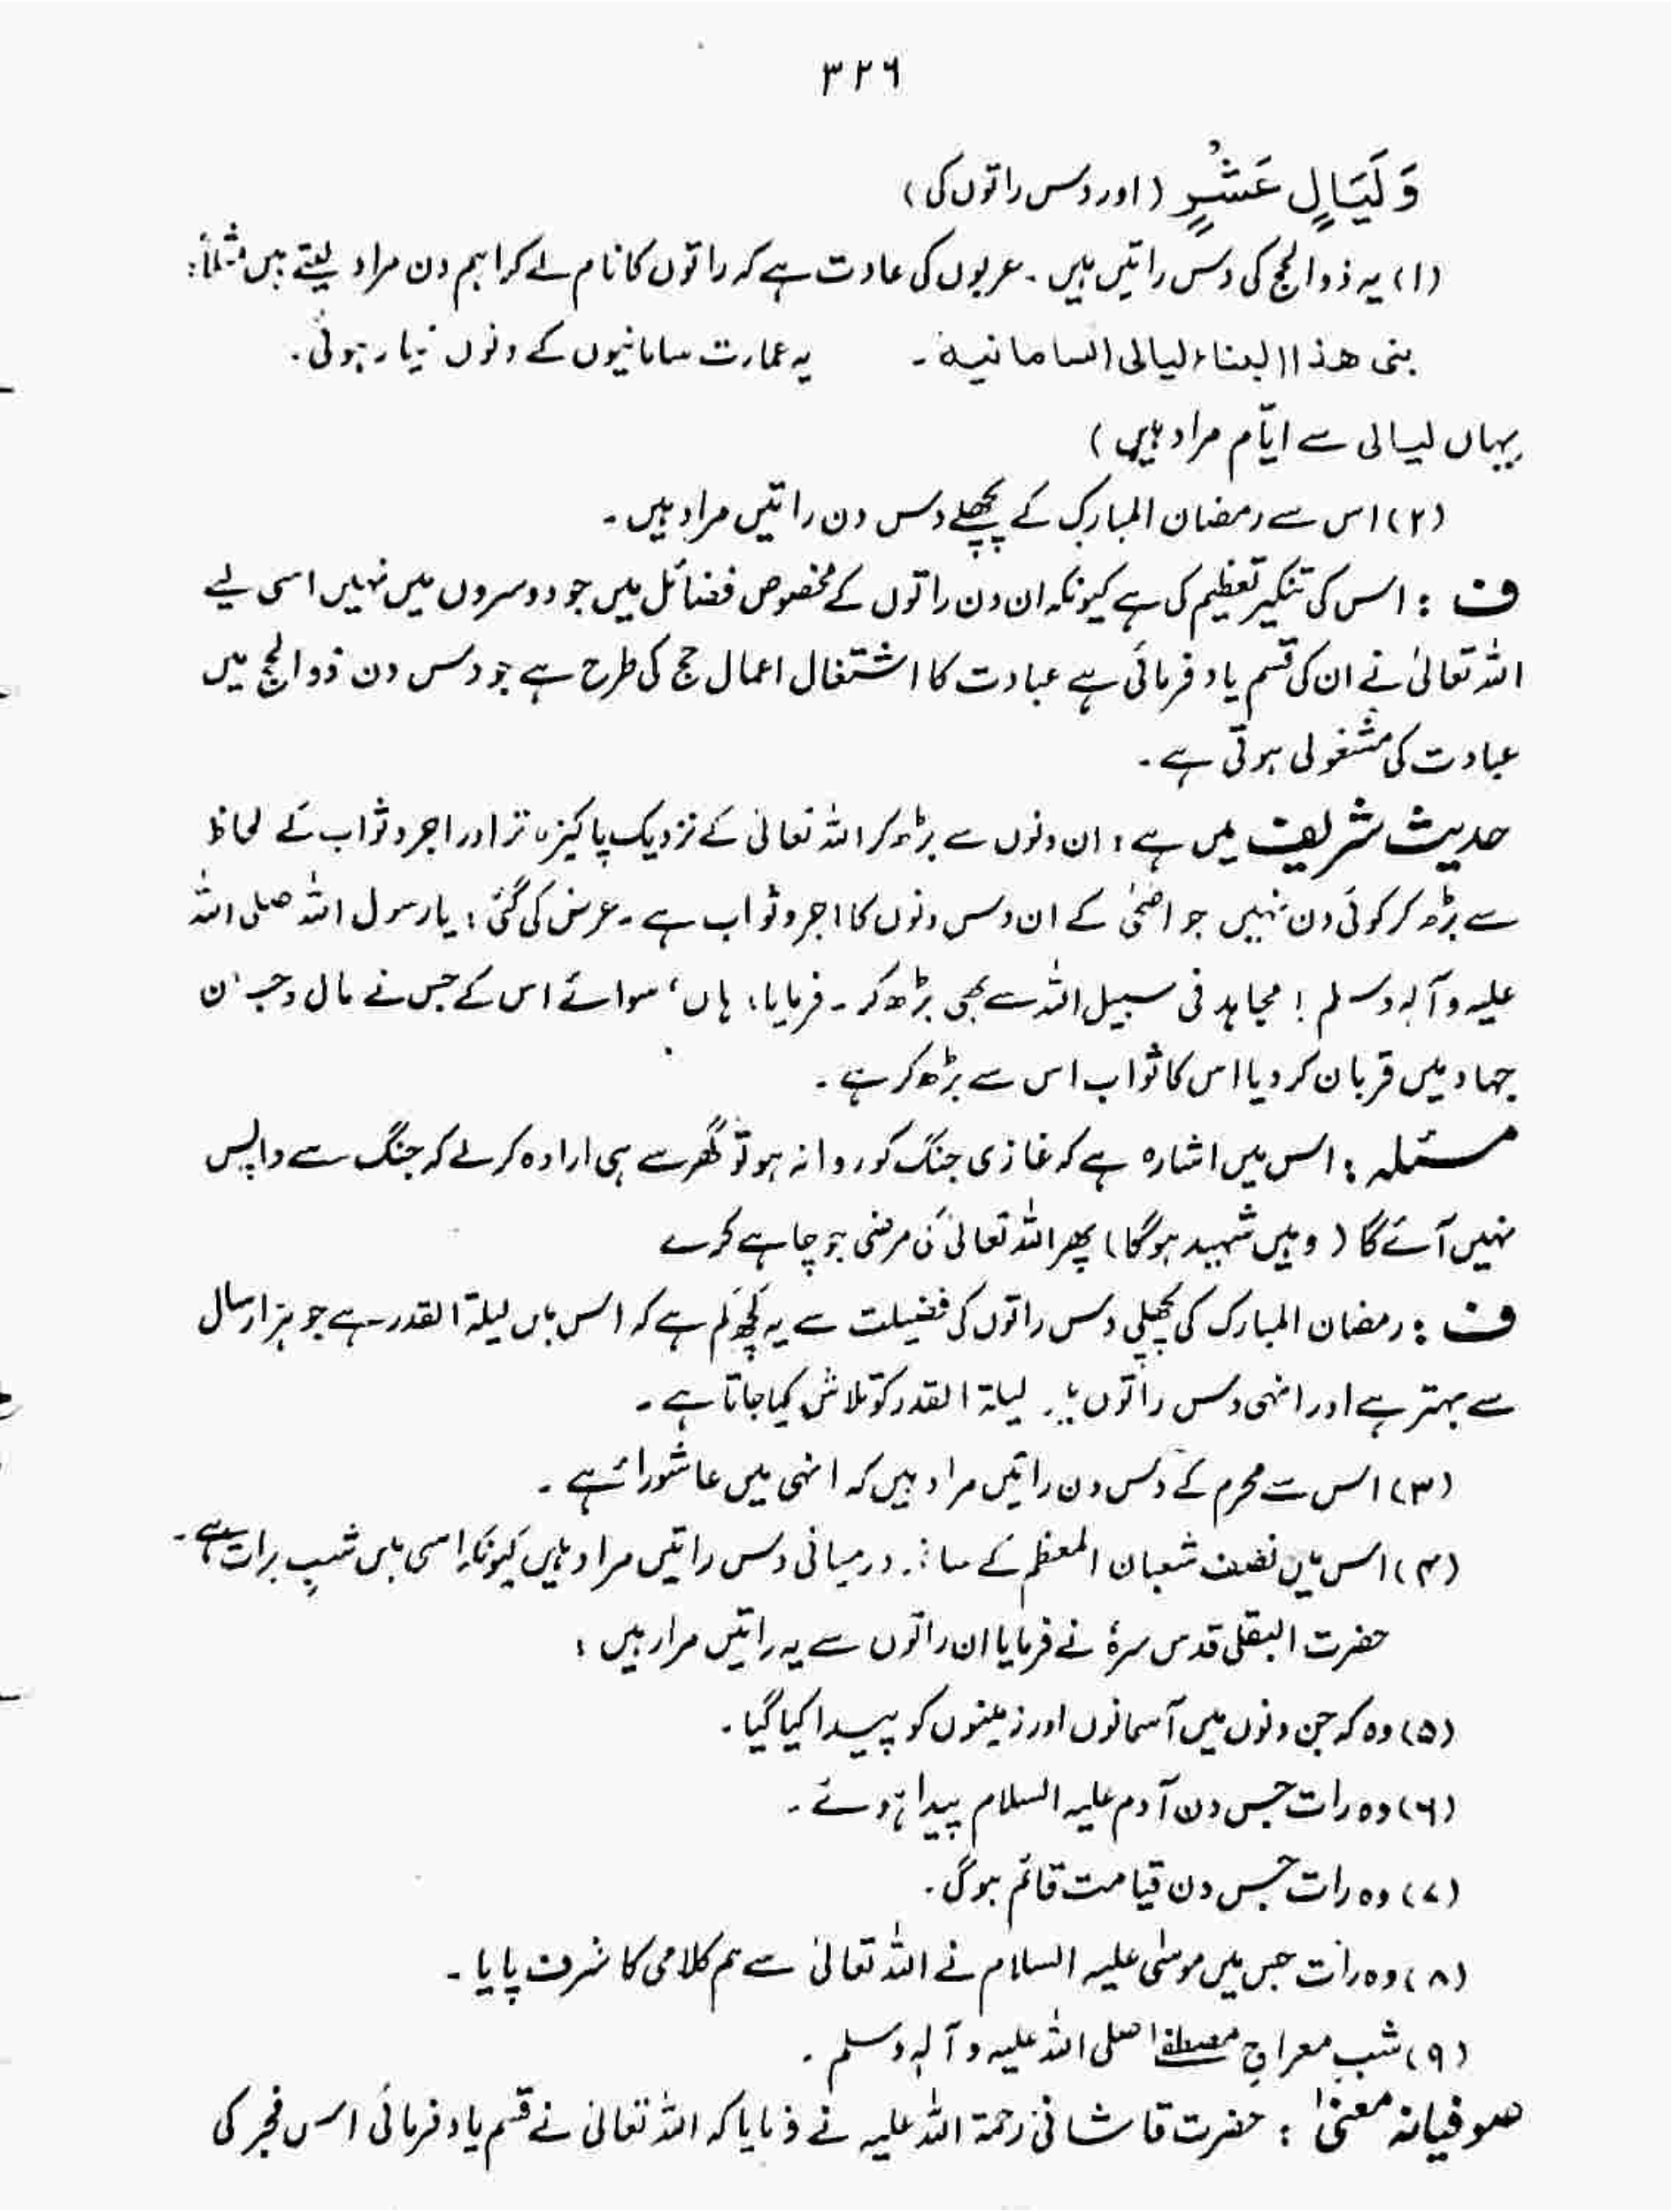 ۳۲۶
وَلَيَالٍ عَشْرٍ (اور دس راتوں کی)
(۱) یہ ذوالحج کی دس راتیں ہیں۔ عربوں کی عادت ہے کہ راتوں کا نام لے کر اہم دن مراد لیتے ہیں مثلاً:
بنی ھذا البناء لیالی السامانیه۔ یہ عمارت سامانیوں کے دنوں تیار ہوئی۔
یہاں لیالی سے ایّام مراد ہیں)
(۲) اس سے رمضان المبارک کے پچھلے دس دن راتیں مراد ہیں۔
ف : اس کی تنکیر تعظیم کی ہے کیونکہ ان دن راتوں کے مخصوص فضائل ہیں جو دوسروں میں نہیں اسی لیے
اللہ تعالیٰ نے ان کی قسم یاد فرمائی ہے عبادت کا اشتغال اعمال حج کی طرح ہے جو دس دن ذوالحج میں
عبادت کی مشغولی ہوتی ہے۔
حدیث شریف میں ہے : ان دنوں سے بڑھ کر اللہ تعالیٰ کے نزدیک پاکیزہ تر اور اجر و ثواب کے لحاظ
سے بڑھ کر کوئی دن نہیں جو اضحیٰ کے ان دس دنوں کا اجر و ثواب ہے۔ عرض کی گئی : یا رسول اللہ صلی اللہ
علیہ وآلہٖ وسلم ! مجاہد فی سبیل اللہ سے بھی بڑھ کر۔ فرمایا : ہاں، سوائے اس کے جس نے مال و جان
جہاد میں قربان کر دیا اس کا ثواب اس سے بڑھ کر ہے۔
مسئلہ : اس میں اشارہ ہے کہ غازی جنگ کو روانہ ہو تو گھر سے ہی ارادہ کر لے کہ جنگ سے واپس
نہیں آئے گا (وہیں شہید ہو گا) پھر اللہ تعالیٰ کی مرضی جو چاہے کرے
ف : رمضان المبارک کی پچھلی دس راتوں کی فضیلت سے یہ کچھ کم ہے کہ اس میں لیلۃ القدر ہے جو ہزار سال
سے بہتر ہے اور انہی دس راتوں میں لیلۃ القدر کو تلاش کیا جاتا ہے۔
(۳) اس سے محرم کے دس دن راتیں مراد ہیں کہ انہی میں عاشوراء ہے۔
(۴) اس میں نصف شعبان المعظم کے درمیانی دس راتیں مراد ہیں کیونکہ اسی میں شبِ برات ہے۔
حضرت البقلی قدس سرہٗ نے فرمایا ان راتوں سے یہ راتیں مراد ہیں :
(۵) وہ کہ جن دنوں میں آسمانوں اور زمینوں کو پیدا کیا گیا۔
(۶) وہ رات جس دن آدم علیہ السلام پیدا ہوئے۔
(۷) وہ رات جس دن قیامت قائم ہوگی۔
(۸) وہ رات جس میں موسٰی علیہ السلام نے اللہ تعالیٰ سے ہم کلامی کا شرف پایا۔
(۹) شبِ معراجِ مصطفٰے صلی اللہ علیہ وآلہٖ وسلم۔
صوفیانہ معنیٰ : حضرت قاشانی رحمۃ اللہ علیہ نے فرمایا کہ اللہ تعالیٰ نے قسم یاد فرمائی اس فجر کی